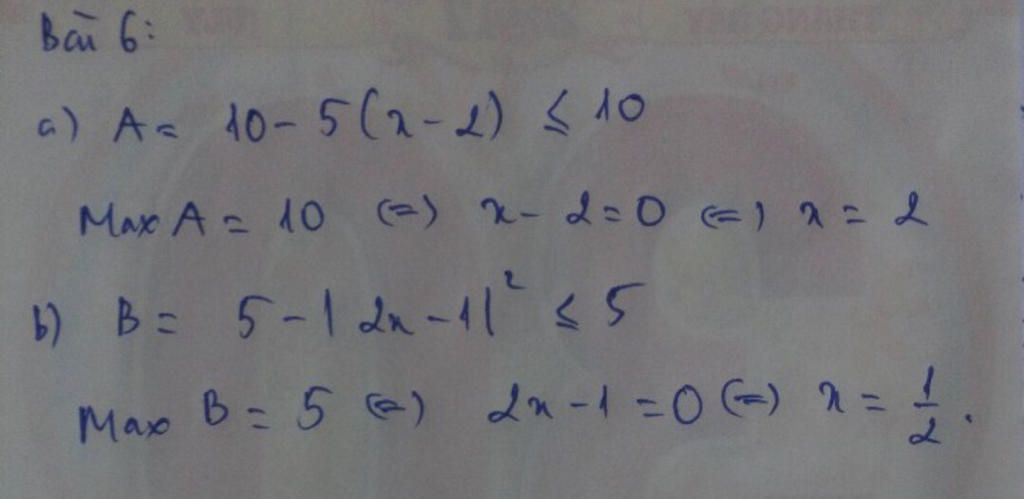 Bài 6:
a) A = 10 - 5(x - 2) ≤ 10
Max A = 10 (=) x - 2 = 0 (=) x = 2
b) B = 5 - |2x - 1|² ≤ 5
Max B = 5 (=) 2x - 1 = 0 (=) x = 1/2.